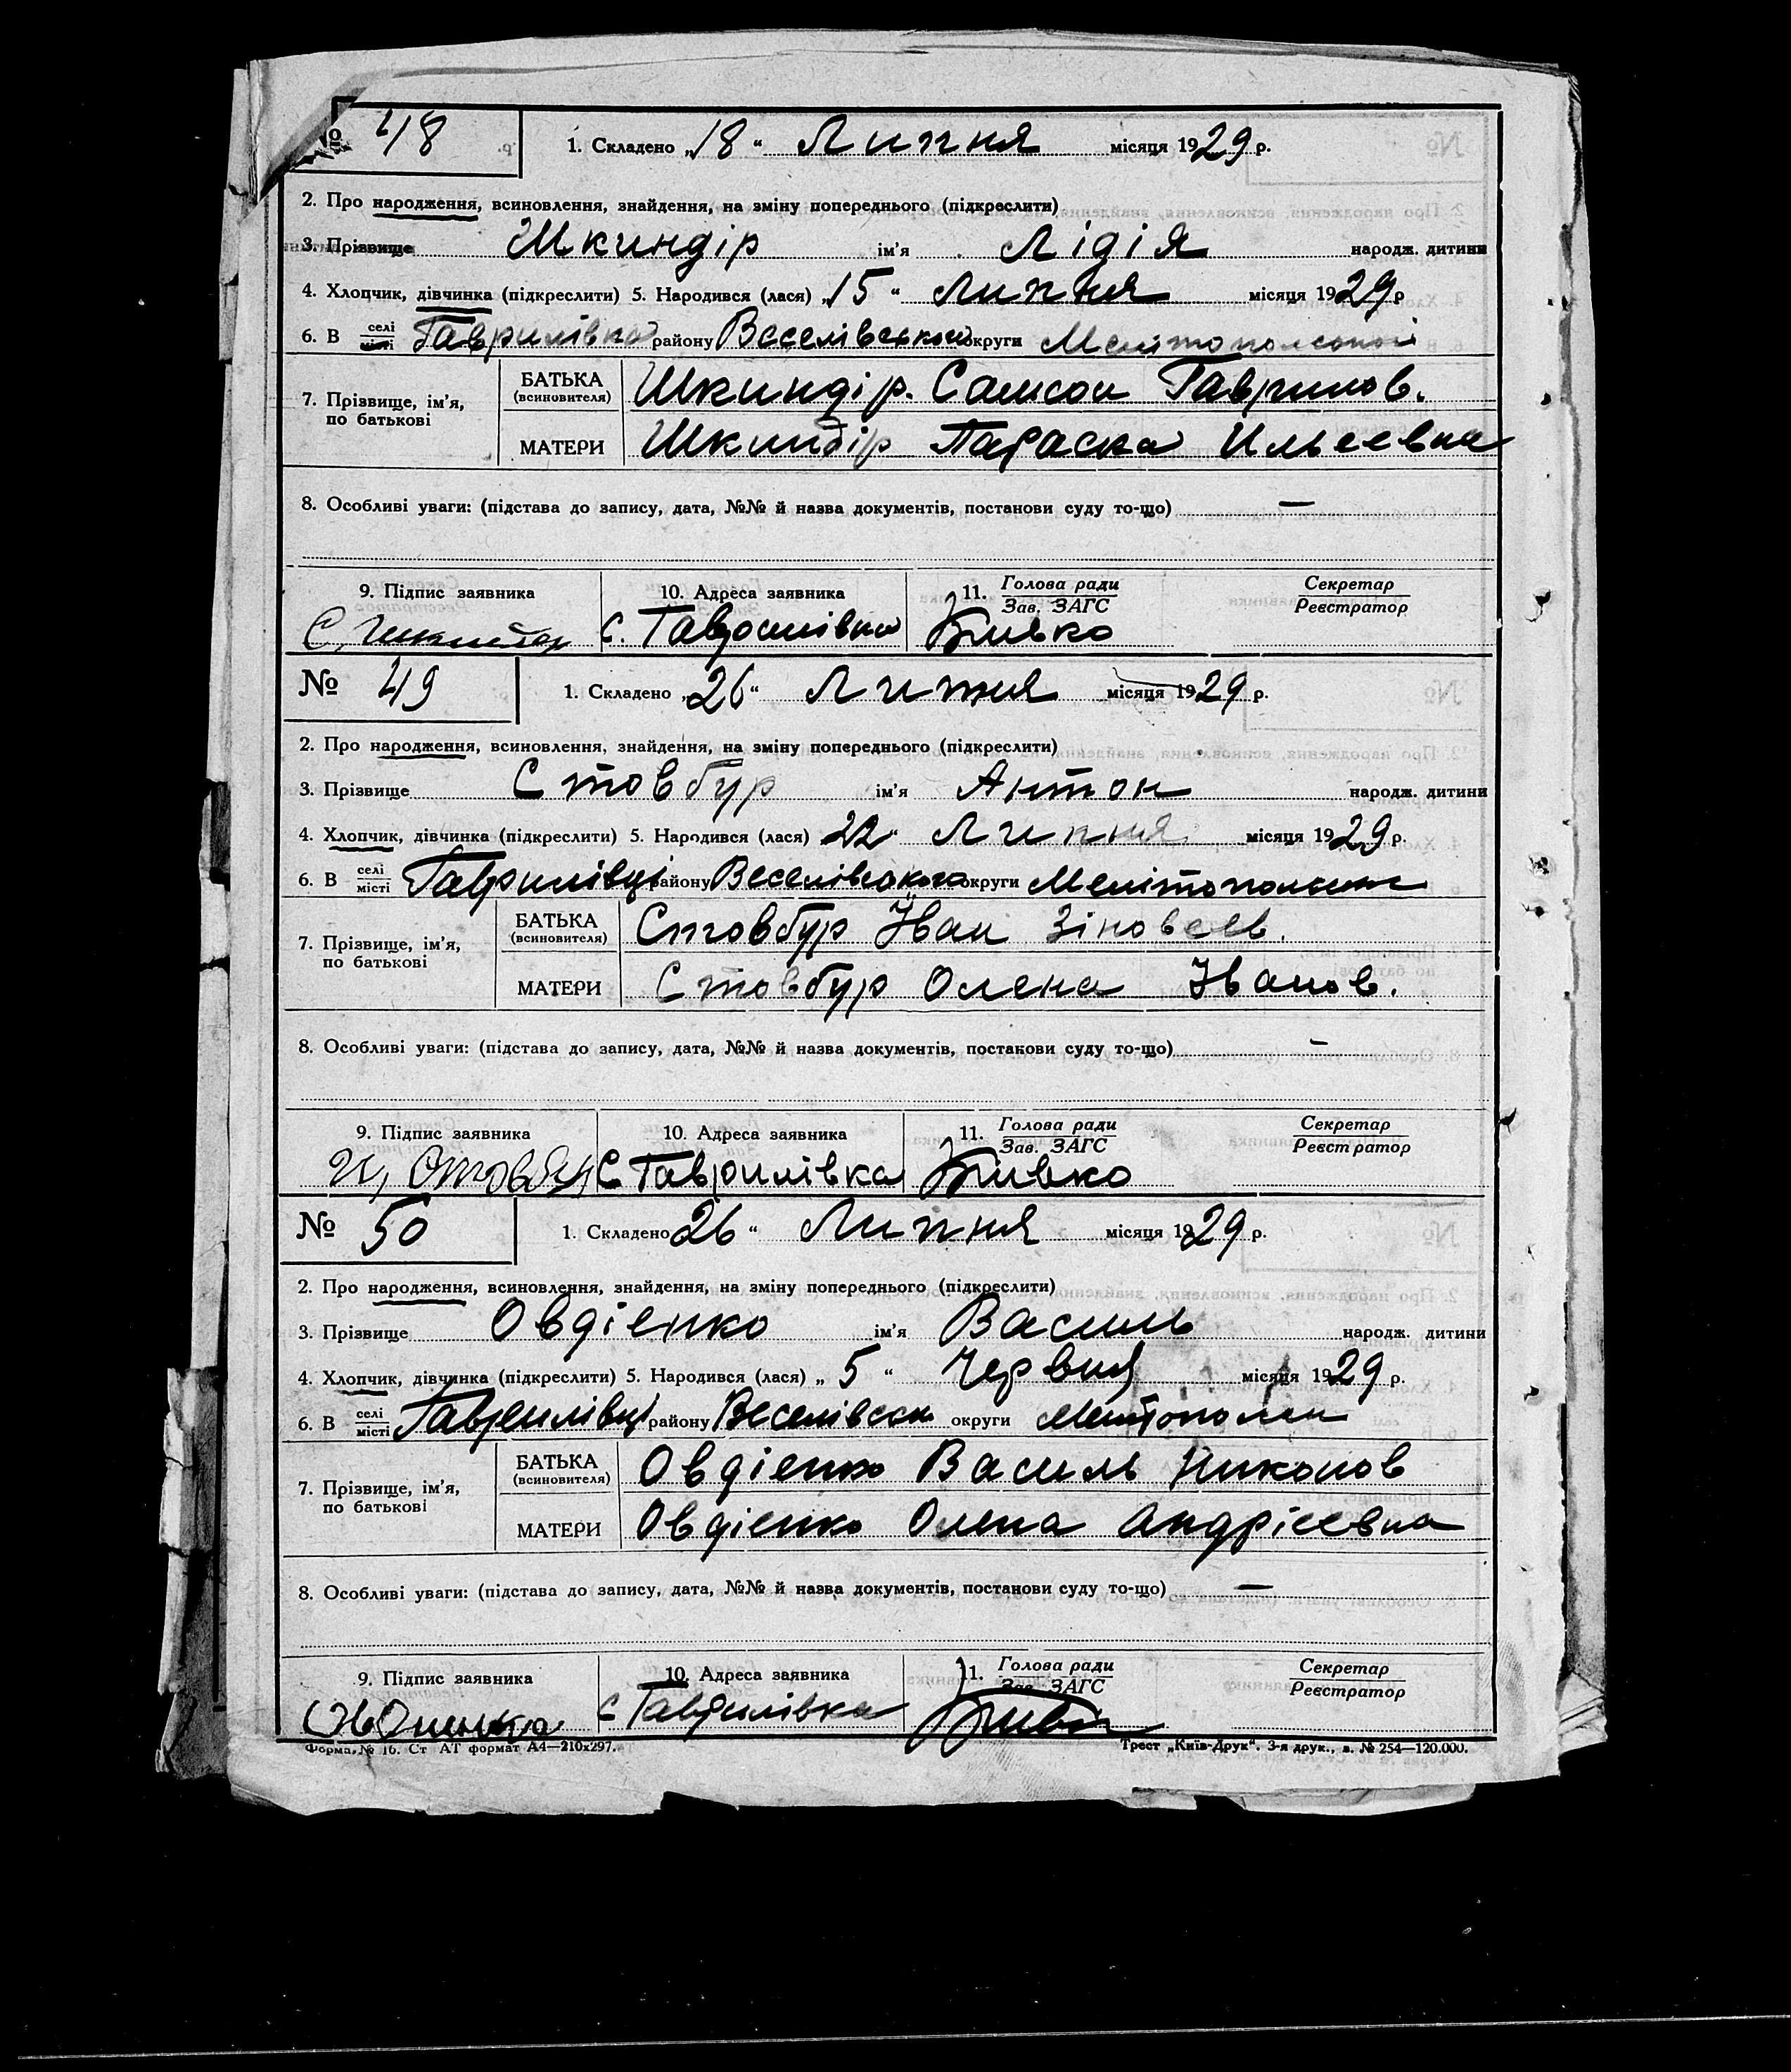 № 48 1. Складено „18“ Липня місяця 1929 р.
2. Про народження, всиновлення, знайдення, на зміну попереднього (підкреслити)
3. Прізвище Шкиндір ім'я Лідія народж. дитини
4. Хлопчик, дівчинка (підкреслити) 5. Народився (лася) „15“ Липня місяця 1929 р
6. В селі місті Гаврилівка району Веселівського округи Мелітопольской
7. Прізвище, ім'я, по батькові
БАТЬКА (всиновителя) Шкиндір. Самсон Гаврилов.
МАТЕРИ Шкиндір Параска Ильеевна
8. Особливі уваги: (підстава до запису, дата, №№ й назва документів, постанови суду то-що) —
9. Підпис заявника 10. Адреса заявника 11. Голова ради Зав. ЗАГС Секретар Реєстратор
С. с. Гаврилівка Бивко
№ 49 1. Складено „26“ Липня місяця 1929 р.
2. Про народження, всиновлення, знайдення, на зміну попереднього (підкреслити)
3. Прізвище Стовбур ім'я Антон народж. дитини
4. Хлопчик, дівчинка (підкреслити) 5. Народився (лася) 22“ Липня місяця 1929 р.
6. В селі місті Гаврилівці району Веселівського округи
7. Прізвище, ім'я, по батькові
БАТЬКА (всиновителя) Стовбур Іван Зіновєєв.
МАТЕРИ Стовбур Олена Іванов.
8. Особливі уваги: (підстава до запису, дата, №№ й назва документів, постанови суду то-що) —
9. Підпис заявника 10. Адреса заявника 11. Голова ради Зав. ЗАГС Секретар Реєстратор
И, Стовбур С Гаврилівка Бивко
№ 50 1. Складено 26“ Липня місяця 1929 р.
2. Про народження, всиновлення, знайдення, на зміну попереднього (підкреслити)
3. Прізвище Овдієнко ім'я Василь народж. дитини
4. Хлопчик, дівчинка (підкреслити) 5. Народився (лася) „5“ Червня місяця 1929 р.
6. В селі місті Гаврилівці району Веселівськ округи
7. Прізвище, ім'я, по батькові
БАТЬКА (всиновителя) Овдієнко Василь Никонов
МАТЕРИ Овдієнко Олена Андрієевна
8. Особливі уваги: (підстава до запису, дата, №№ й назва документів, постанови суду то-що) —
9. Підпис заявника 10. Адреса заявника 11. Голова ради Зав. ЗАГС Секретар Реєстратор
с Гаврилівка
Форма № 16. Ст АТ формат А4—210x297. Трест „Київ-Друк“. 3-я друк., з. № 254—120.000.